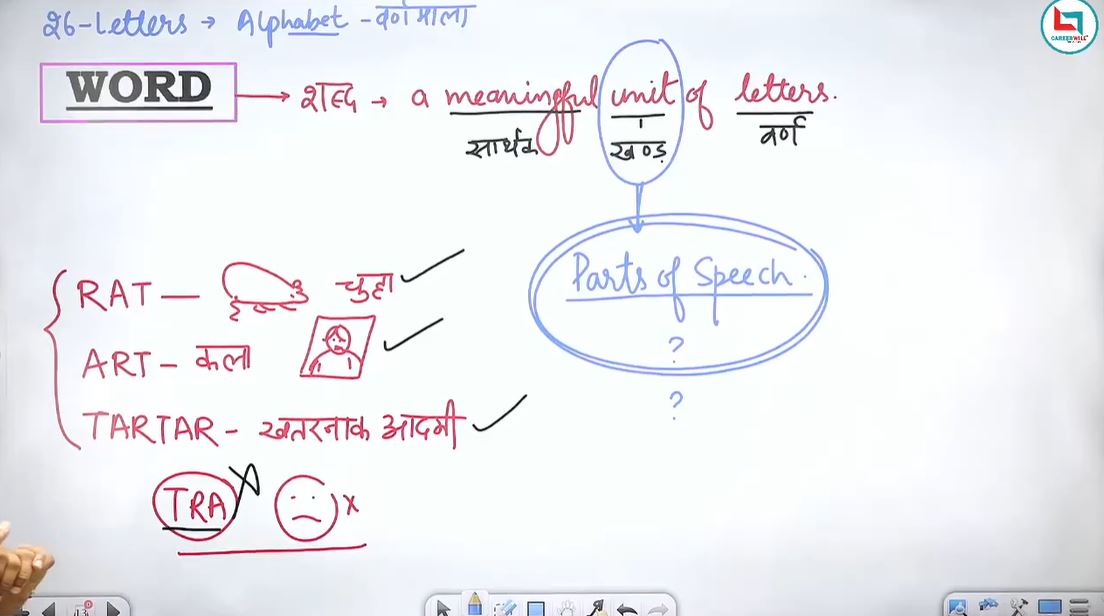 26-Letters → Alphabet - वर्णमाला
WORD → शब्द → a meaningful unit of letters.
सार्थक खण्ड वर्ण
Parts of Speech.
?
?
RAT — चुहा
ART - कला
TARTAR - खतरनाक आदमी
TRA x
CAREERWILL